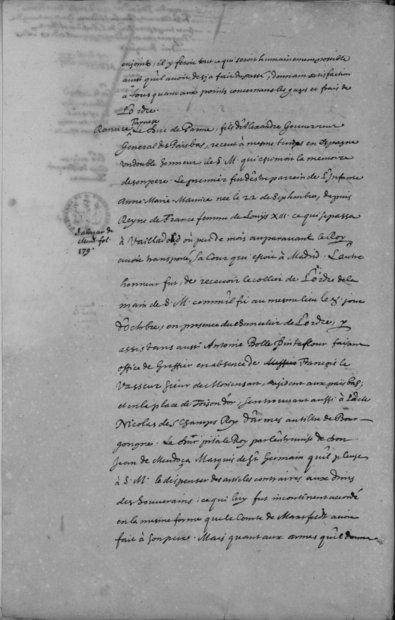 enjoint, il y feroit tout ce qui seroit humainement possible
ainsi qu'il avoit desja fait du passé, donnant satisfaction
à tous quant aux points concernants les gages et frais de
L'ordre.
Ranuce Farnese
Le Duc de Parme, fils d'Alexandre Gouverneur
General des Païsbas, receut à mesme temps en Espagne
un double honneur de S. M. qui estimoit la memoire
de son pere. Le premier fut d'estre parrein de l'Infante
Anne Marie Maurice née le 22 de Septembre, depuis
Reyne de France femme de Louys XIII. ce qui se passa
à Vailladolid où peu de mois auparavant le Roy
avoit transporté sa Cour qui estoit à Madrid. L'autre
honneur fut, de recevoir le collier de l'ordre de la
main de S. M. comme il fit au mesme lieu le jour
d'Octobre, en presence du de L'ordre, y
assistans aussi Antoine Dolle Pintaflour faisant
office de Greffier en absence de François le
Vasseur Sieur de Moriensart, resident aux païsbas;
et en la place de Toison d'or, se retrouvant aussi à l'acte
Nicolas des Champs Roy d'Armes au tiltre de Bour-
gongne. Le Duc pria le Roy par l'entremise de Don
Juan de Mendoça Marquis de St. Germain qu'il pleust
à S. M. le dispenser des articles contraires aux droits
des Souverains; ce qui luy fut incontinent accordé
en la mesme forme que le Comte de Mansfeldt avoit
fait à son pere. Mais quant aux armes qu'il donna
179.